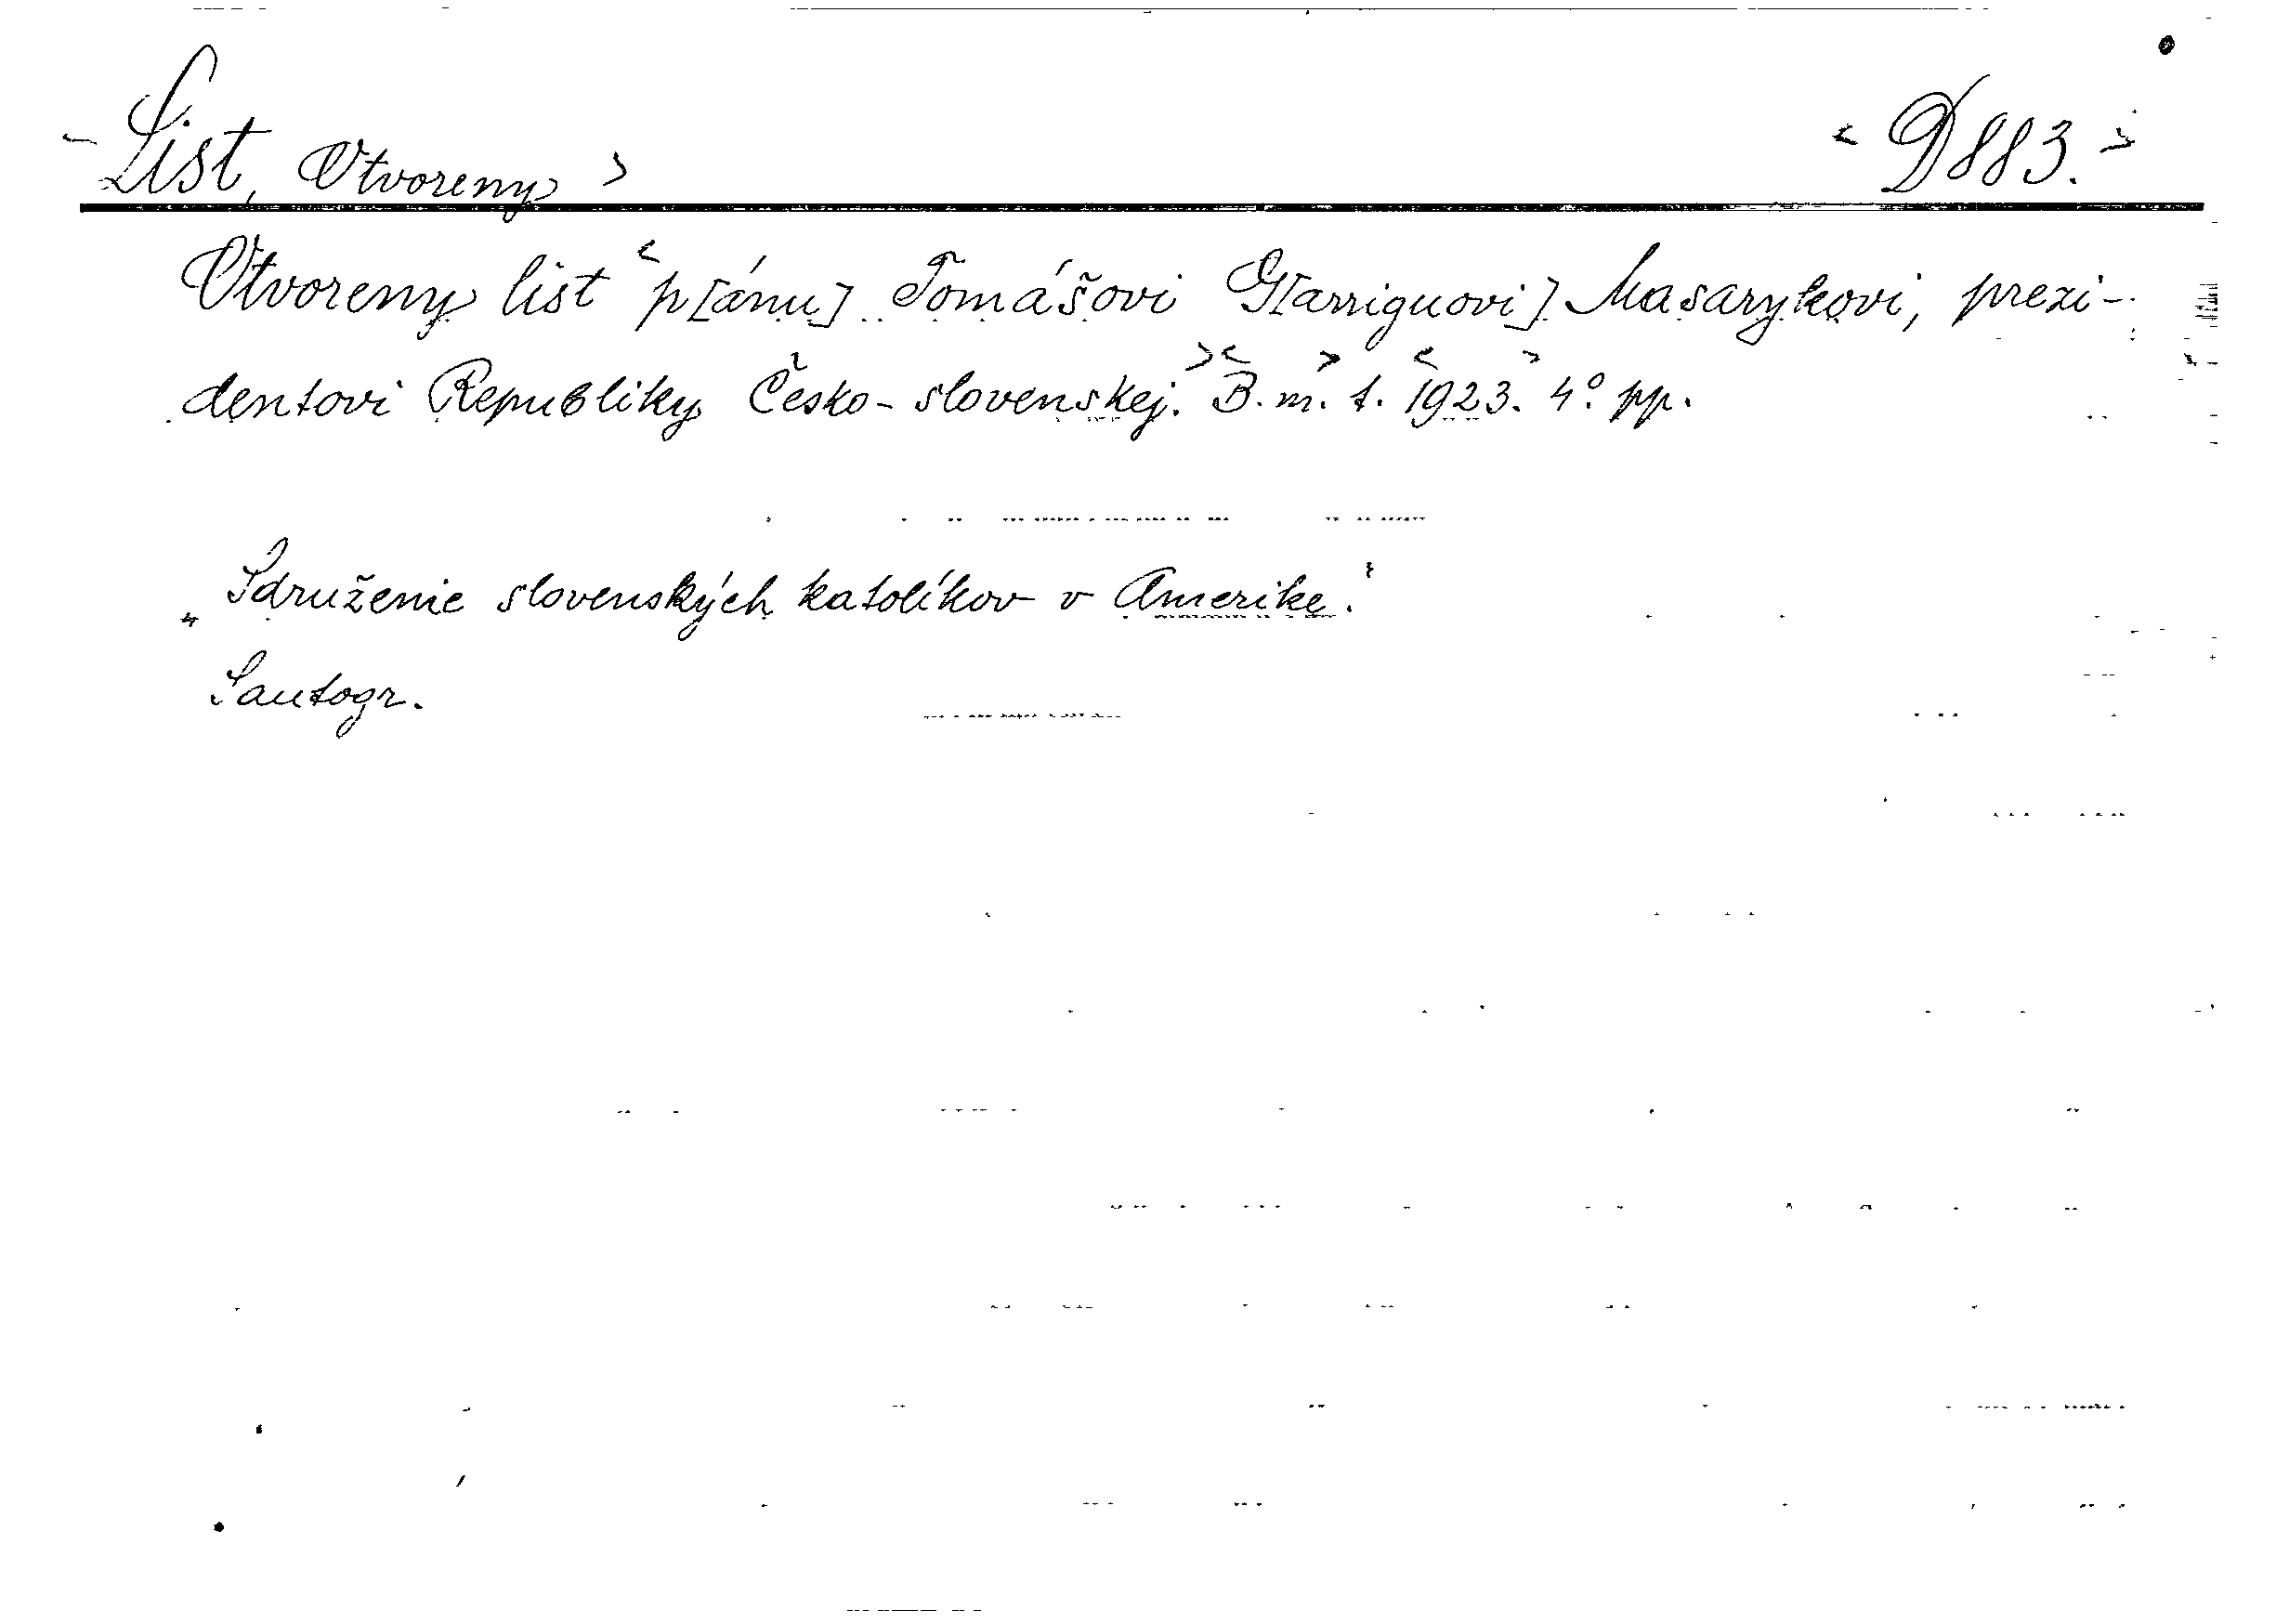 <List, Otvoreny> <D883.>
Otvoreny list <p[ánu] Tomášovi G[arriguovi] Masarykovi, prezi-
dentovi Republiky Česko-slovenskej.> <B. m. t.> <1923.> 4° pp.
„Sdruženie slovenských katolíkov v Amerike."
Sautogr.